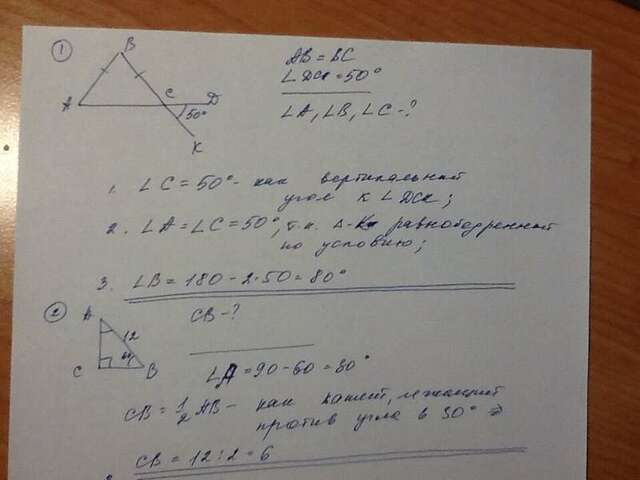 1
B
A
C
D
50°
K
AB = BC
∠DCK = 50°
∠A, ∠B, ∠C - ?
1. ∠C = 50° - как вертикальный
угол к ∠DCK;
2. ∠A = ∠C = 50°, т.к. Δ-к равнобедренный
по условию;
3. ∠B = 180 - 2·50 = 80°
2
A
12
C
B
CB - ?
∠A = 90 - 60 = 30°
CB = 1/2 AB - как катет, лежащий
против угла в 30° ⇒
CB = 12 : 2 = 6